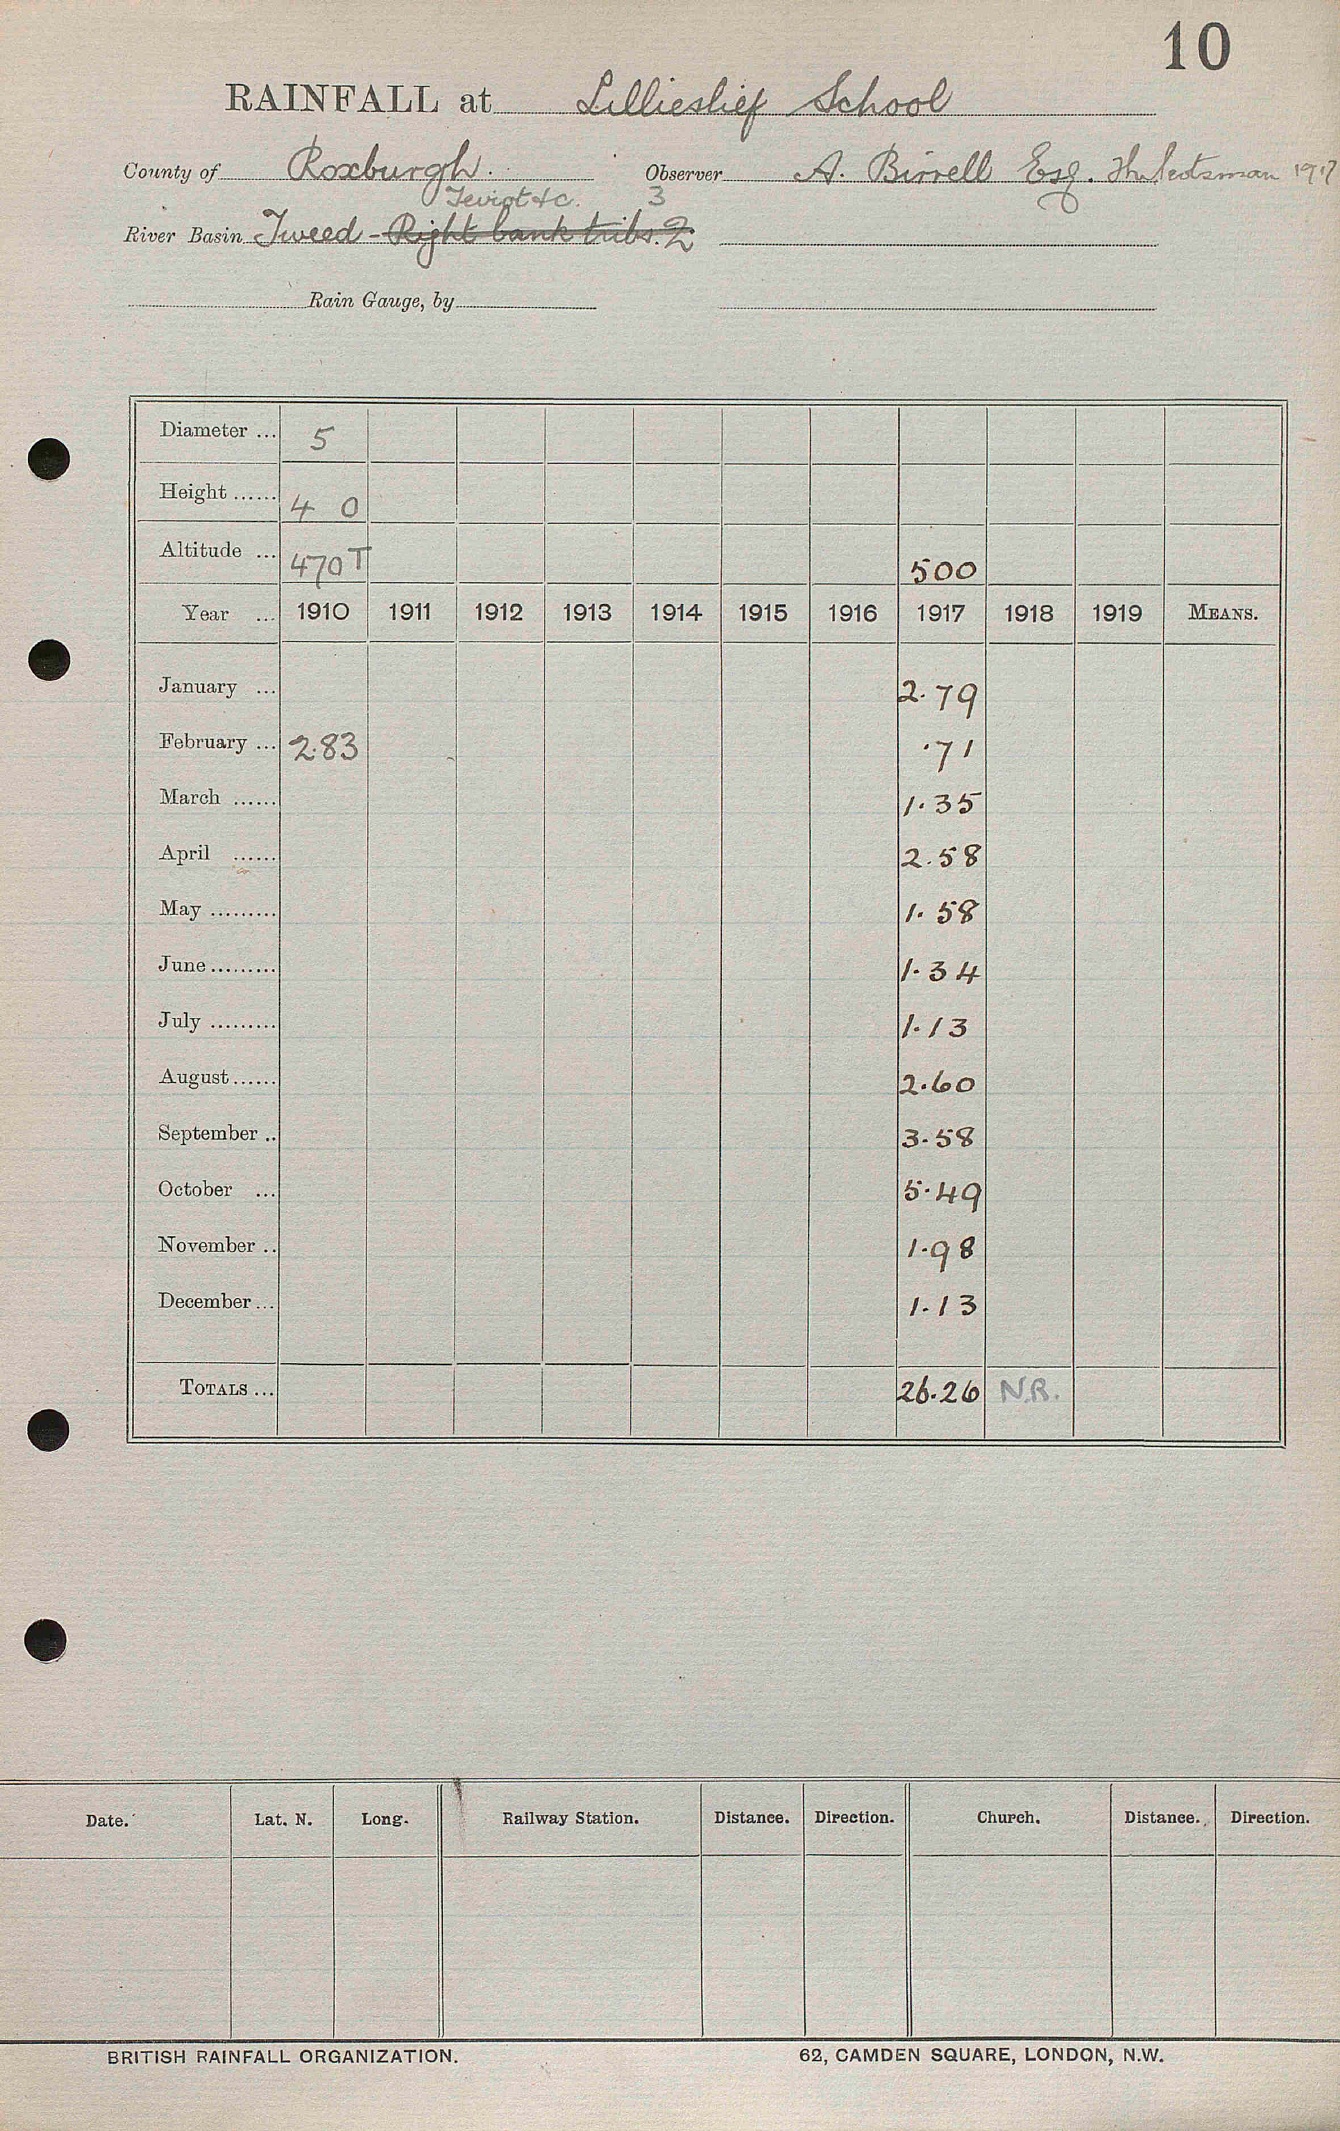 10
RAINFALL at Lillieslief School
County of Roxburgh. Observer A. Birrell Esq. The Scotsman 1917
Teviot &c. 3
River Basin Tweed - Right bank tribs. 2
Rain Gauge, by
Diameter ... 5
Height ...... 4 0
Altitude ... 470 T 500
Year ... 1910 1911 1912 1913 1914 1915 1916 1917 1918 1919 MEANS.
January ... 2.79
February ... 2.83 .71
March ...... 1.35
April ...... 2.58
May ......... 1.58
June ......... 1.34
July ......... 1.13
August ...... 2.60
September .. 3.58
October ... 5.49
November .. 1.98
December ... 1.13
TOTALS ... 26.26 N.R.
Date. Lat. N. Long. Railway Station. Distance. Direction. Church. Distance. Direction.
BRITISH RAINFALL ORGANIZATION. 62, CAMDEN SQUARE, LONDON, N.W.